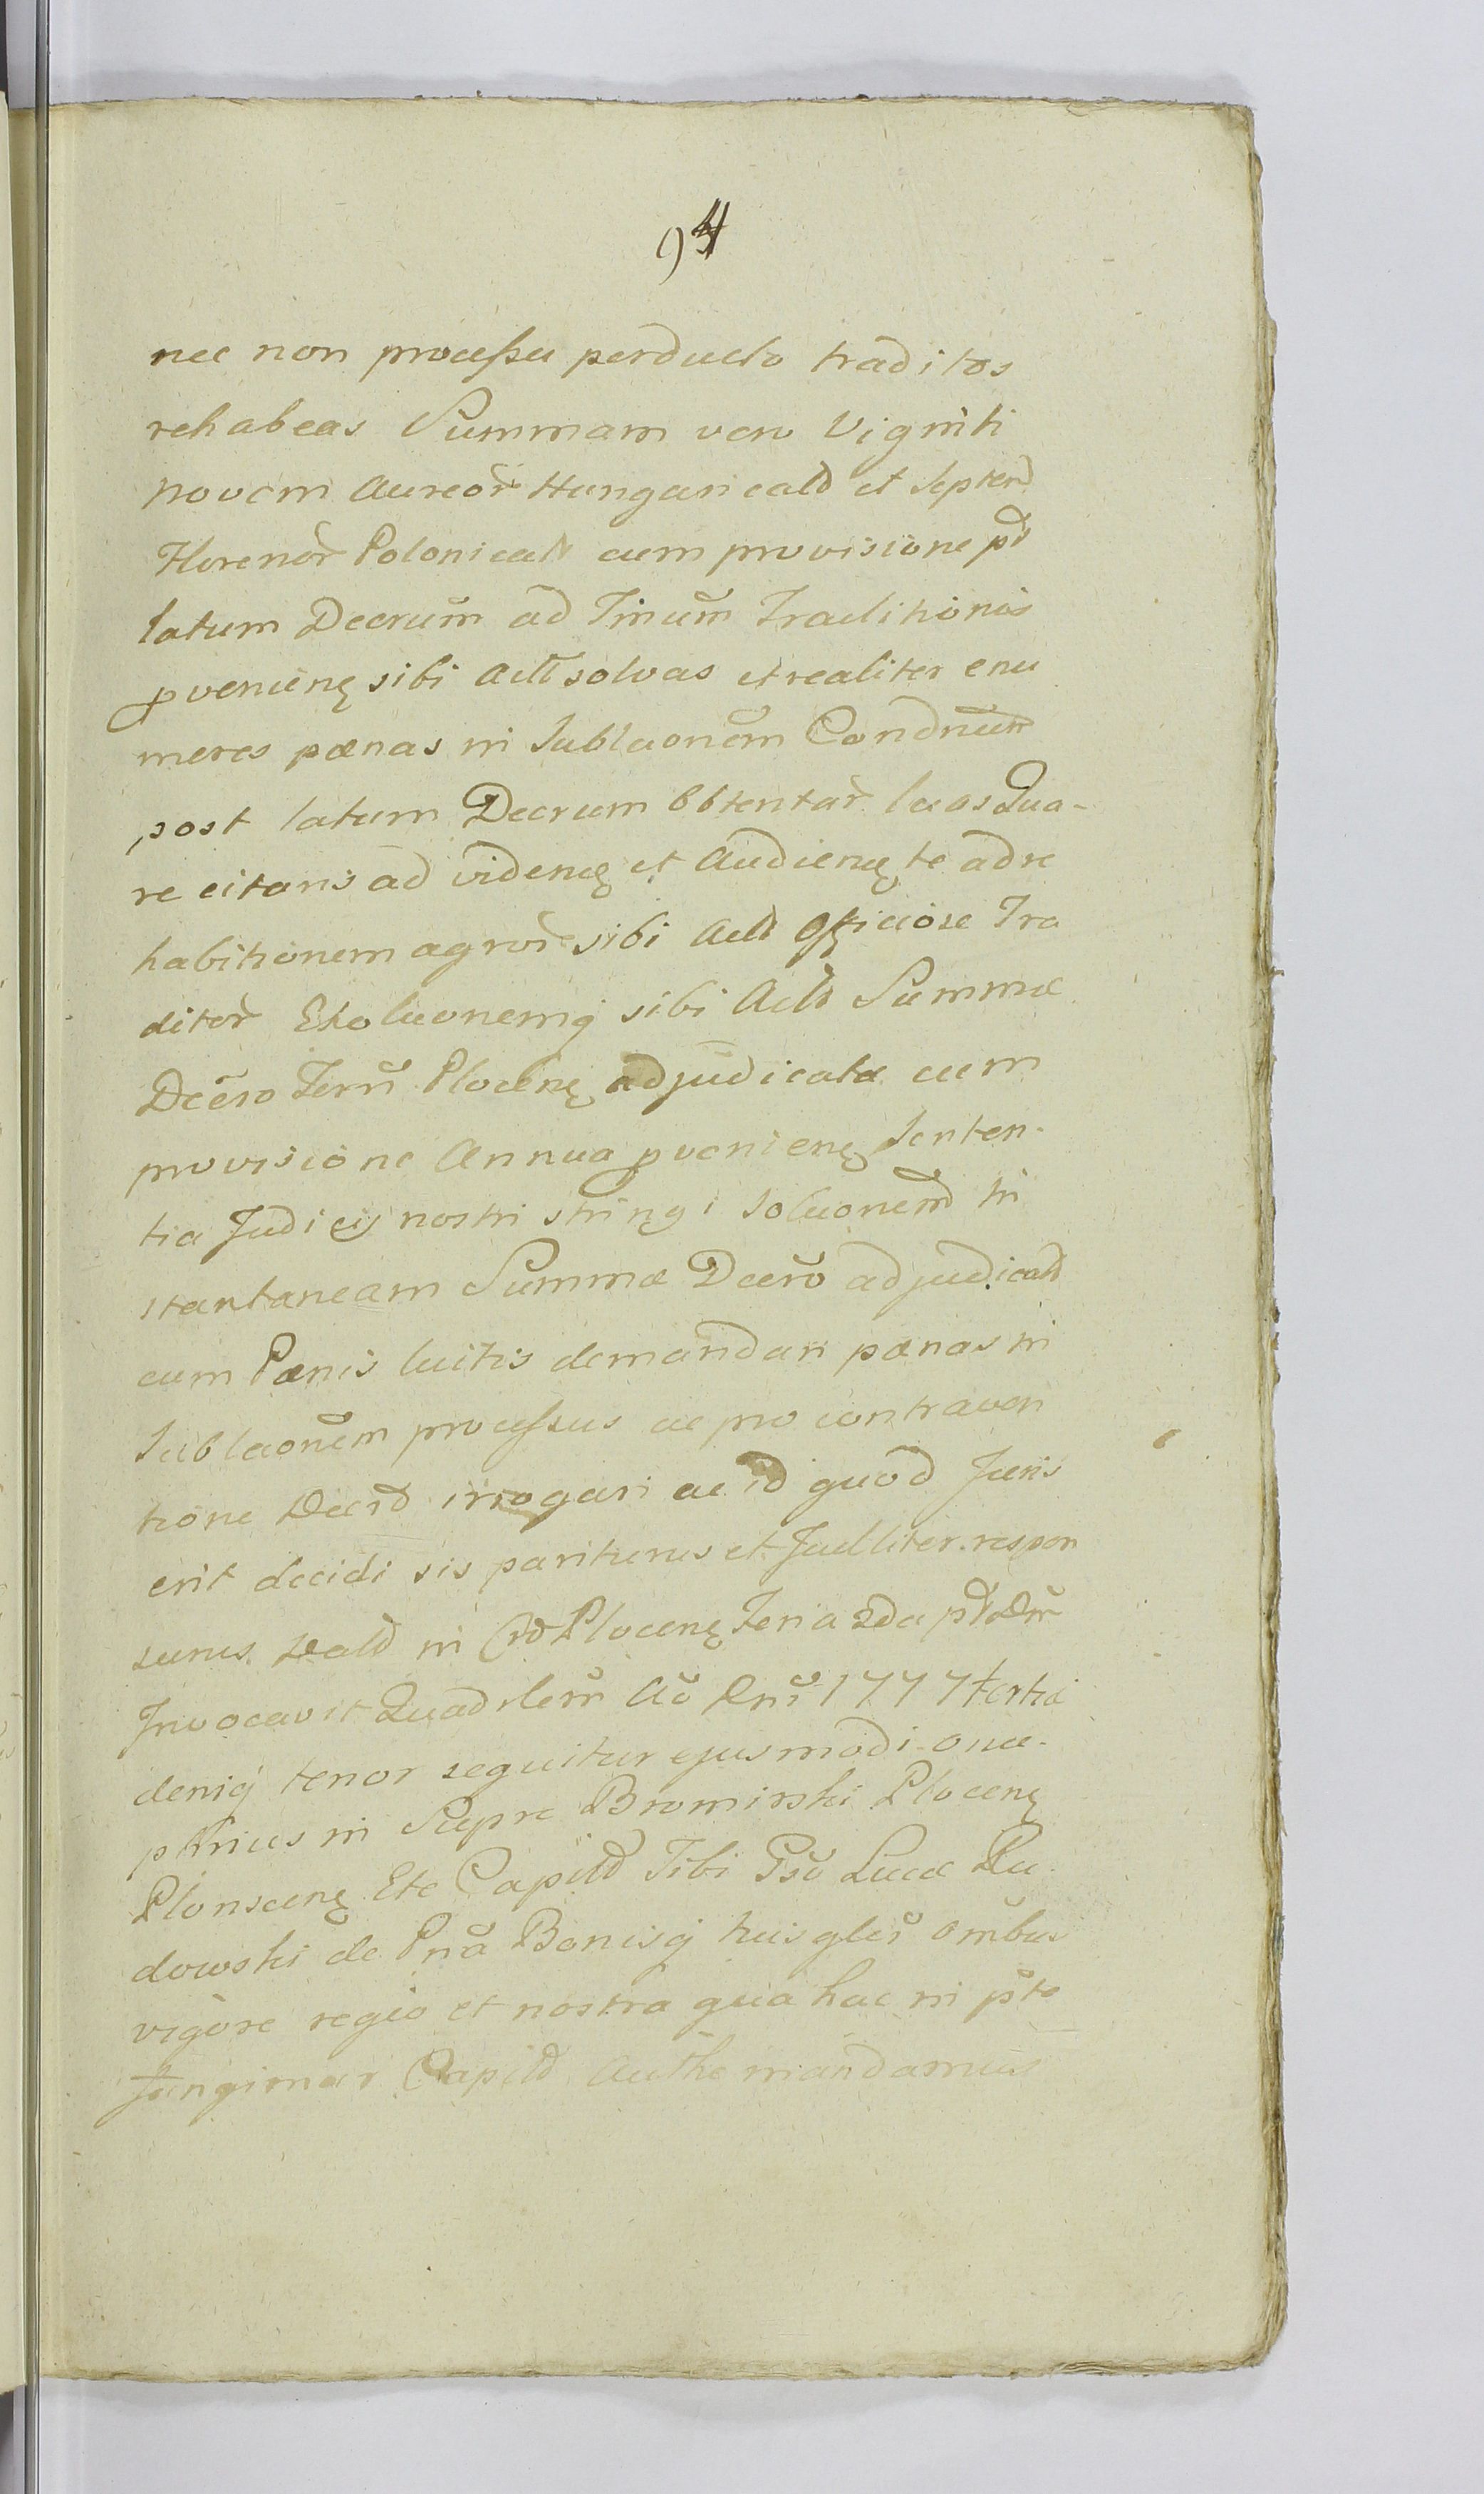 94
nec non processu perducto traditos
rehabeas Summam vero Viginti
novem Aureor Hungaricald et Septem
Florenor Polonicalt cum provisione pt
latum Decrum ad Tmum Traditionis
pvenienę sibi Actt solvas et realiter enu
meres pænas in sublaonem Condnum
post latum Decrum Obtentar luas Qua-
re citaris ad videnę et Audienę te ad re
habitionem agror sibi Actt Officiose Tra
ditor Exoluonemq sibi Actt Summæ
Decro Terri Plocenę adjudicatæ cum
provisione Annua pvenienę Senten-
tia Judicij nostri stringi soluonemq in
stantaneam Summæ Decro adjudicatt
cum Pænis luitis demandari pænas in
sublaonem processus ac pro contraven
tione Decrd irrogari ac id quod Juris
erit decidi sis pariturus et Judliter respon
surus. Datt in Crd Plocenę Feria 2da pt Dm
Invocavit Quadrlem Ao Dni 1777 tertiæ
deniq tenor sequitur ejusmodi
in Bromirski Plocenę
Plonscenę Etc Capitt Tibi Gso Lucæ Ru
dowski de Pna Bonisq tuis gler ombus
vigore regio et nostra qua hac in pte
fungimur Capitt Authe mandamus